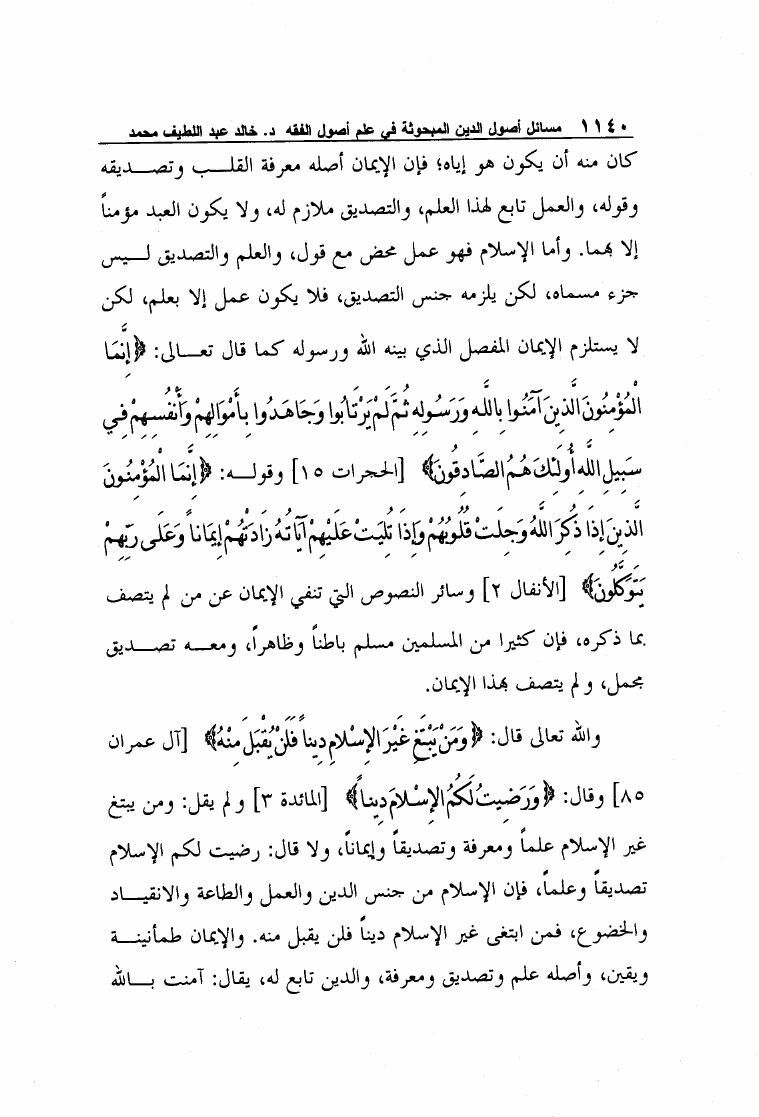 ١١٤٠ مسائل أصول الدين المبحوثة في علم أصول الفقه د. خالد عبد اللطيف محمد
كان منه أن يكون هو إياه؛ فإن الإيمان أصله معرفة القلـــب وتصـــديقه
وقوله، والعمل تابع لهذا العلم، والتصديق ملازم له، ولا يكون العبد مؤمناً
إلا بهما. وأما الإسلام فهو عمل محض مع قول، والعلم والتصديق لـــيس
جزء مسماه، لكن يلزمه جنس التصديق، فلا يكون عمل إلا بعلم، لكن
لا يستلزم الإيمان المفصل الذي بينه الله ورسوله كما قال تعـــالى: ﴿إِنَّمَا
الْمُؤْمِنُونَ الَّذِينَ آمَنُوا بِاللَّهِ وَرَسُولِهِ ثُمَّ لَمْ يَرْتَابُوا وَجَاهَدُوا بِأَمْوَالِهِمْ وَأَنْفُسِهِمْ فِي
سَبِيلِ اللَّهِ أُولَئِكَ هُمُ الصَّادِقُونَ﴾ [الحجرات ١٥] وقولـــه: ﴿إِنَّمَا الْمُؤْمِنُونَ
الَّذِينَ إِذَا ذُكِرَ اللَّهُ وَجِلَتْ قُلُوبُهُمْ وَإِذَا تُلِيَتْ عَلَيْهِمْ آيَاتُهُ زَادَتْهُمْ إِيمَاناً وَعَلَى رَبِّهِمْ
يَتَوَكَّلُونَ﴾ [الأنفال ٢] وسائر النصوص التي تنفي الإيمان عن من لم يتصف
بما ذكره، فإن كثيرا من المسلمين مسلم باطناً وظاهراً، ومعـــه تصـــديق
مجمل، ولم يتصف بهذا الإيمان.
والله تعالى قال: ﴿وَمَنْ يَبْتَغِ غَيْرَ الإِسْلامِ دِيناً فَلَنْ يُقْبَلَ مِنْهُ﴾ [آل عمران
٨٥] وقال: ﴿وَرَضِيتُ لَكُمُ الإِسْلامَ دِيناً﴾ [المائدة ٣] ولم يقل: ومن يبتغ
غير الإسلام علماً ومعرفة وتصديقاً وإيماناً، ولا قال: رضيت لكم الإسلام
تصديقاً وعلماً، فإن الإسلام من جنس الدين والعمل والطاعة والانقيـــاد
والخضوع، فمن ابتغى غير الإسلام ديناً فلن يقبل منه. والإيمان طمأنينـــة
ويقين، وأصله علم وتصديق ومعرفة، والدين تابع له، يقال: آمنت بـــالله